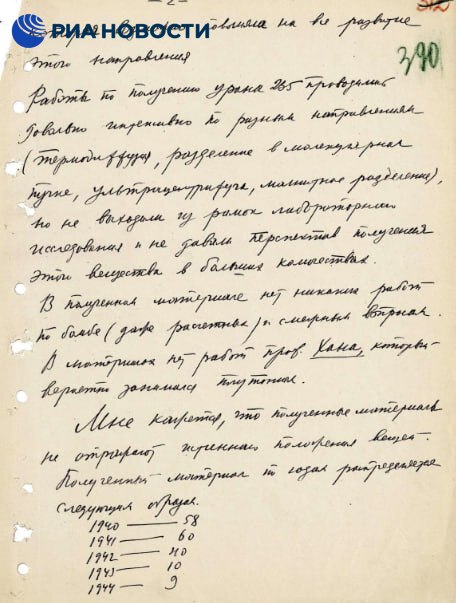 -2-
РИА НОВОСТИ
512
390
на все развитие
этого направления
Работы по получению урана 235 проводились
довольно интенсивно по разным направлениям
(термодиффузия, разделение в молекулярном
пучке, ультрацентрифуга, магнитное разделение),
но не выходили из рамок лабораторного
исследования и не давали перспектив получения
этого вещества в больших количествах.
В полученном материале нет никаких работ
по бомбе (даже расчетных) и смежным вопросам.
В материалах нет работ проф. Хана, который
вероятно занимался плутонием.
Мне кажется, что полученные материалы
не отражают истинного положения вещей.
Полученный материал по годам распределяется
следующим образом.
1940 — 58
1941 — 60
1942 — 40
1943 — 10
1944 — 9